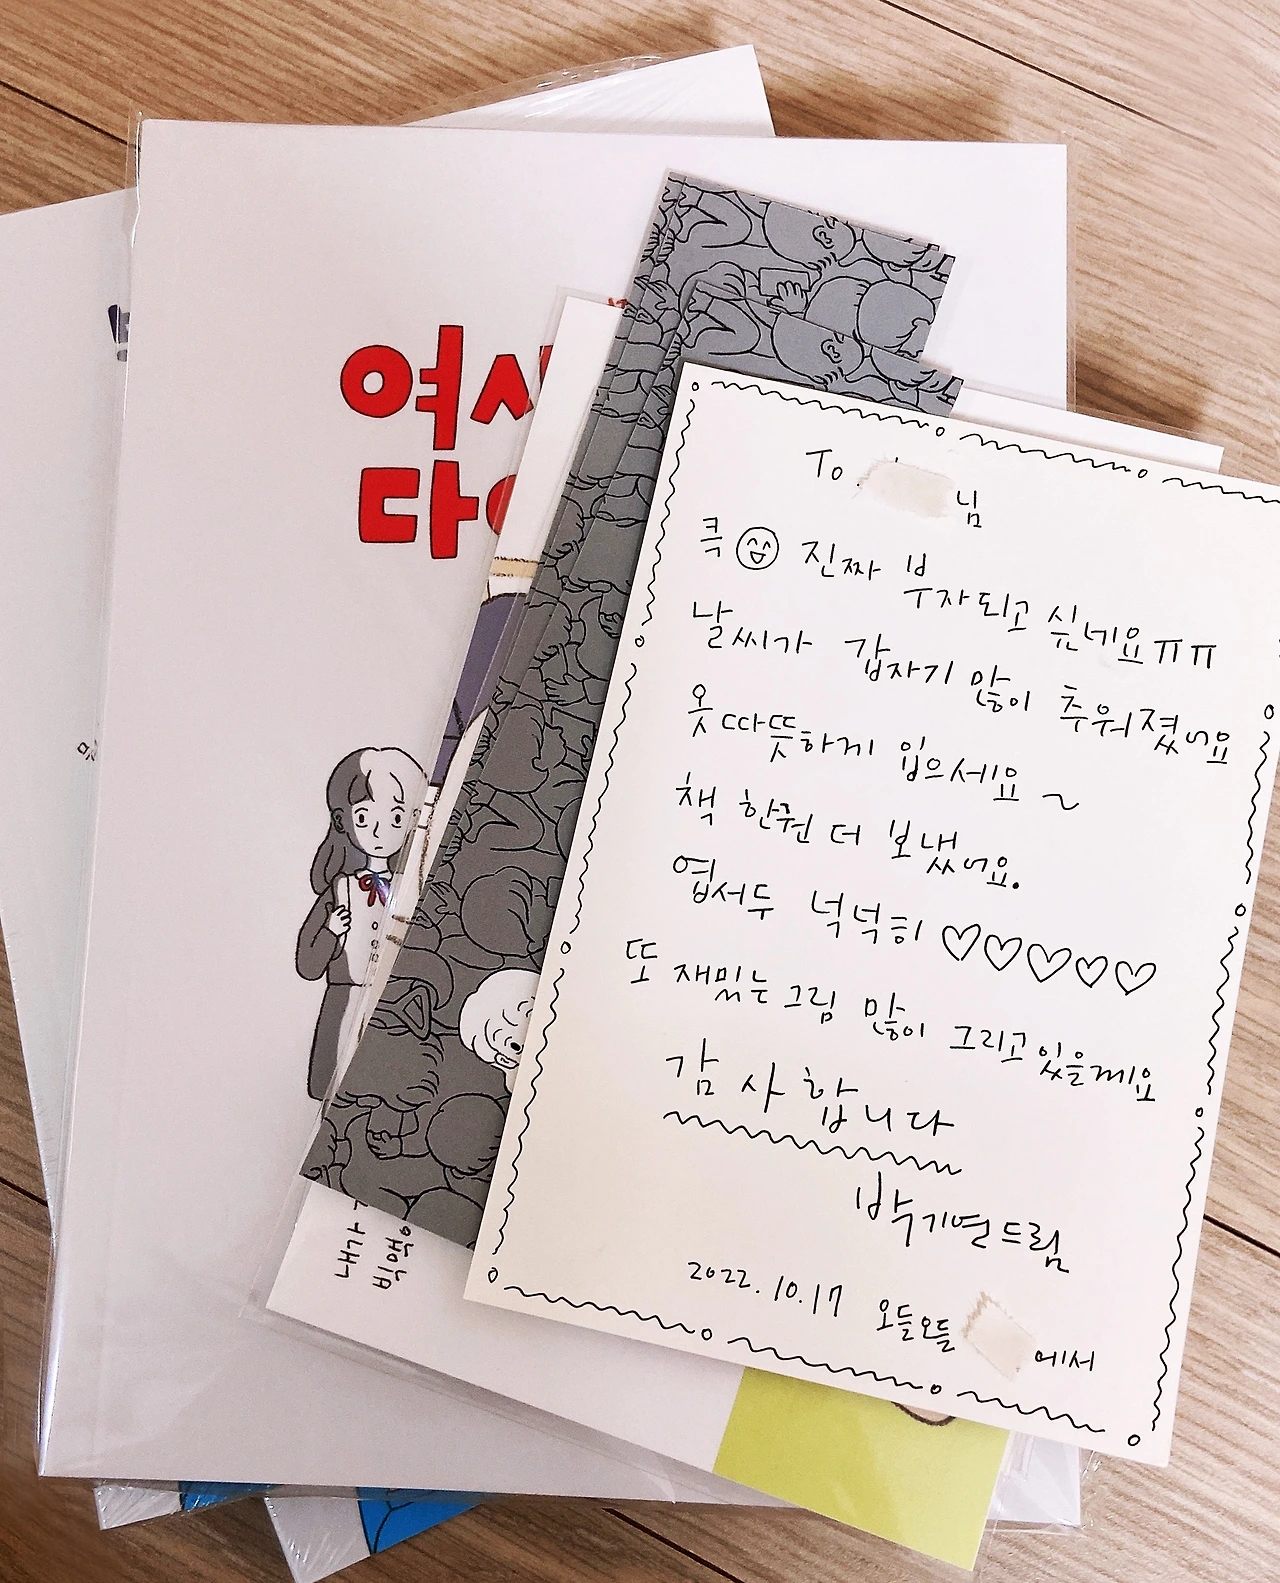 여사
다
To 님
큭 진짜 부자되고 싶네요 ㅠㅠ
날씨가 갑자기 많이 추워졌어요
옷 따뜻하게 입으세요 ~
책 한권 더 보냈어요.
엽서두 넉넉히 ♡♡♡♡♡
또 재밌는 그림 많이 그리고 있을께요
감사합니다
박기연드림
2022.10.17 오들오들 에서